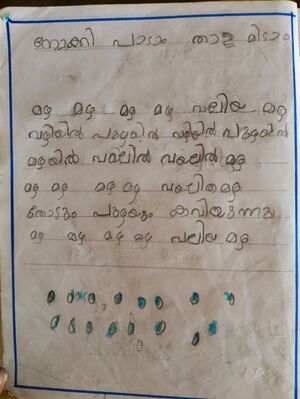 നോക്കി പാടാം താള മിടാം
മഴ മഴ മഴ മഴ വലിയ മഴ
വഴിയിൽ പുഴയിൽ വഴിയിൽ പുഴയിൽ
മഴയിൽ വയലിൽ വയലിൽ മഴ
മഴ മഴ മഴ മഴ വലിയ മഴ
തോടും പുഴയും കവിയുന്നു
മഴ മഴ മഴ മഴ വലിയ മഴ